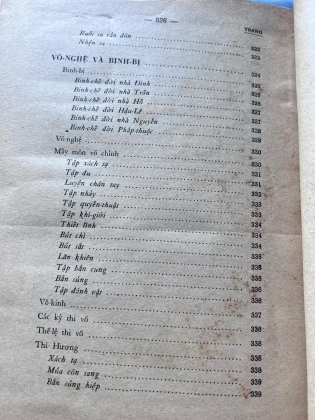 — 526 —
TRANG
Ruồi sợ cần đòn 323
Nhện sa 323
VÕ-NGHỆ VÀ BINH-BỊ 324
Binh-bị 324
Binh-chế đời nhà Đinh
Binh-chế đời nhà Trần
Binh-chế đời nhà Hồ
Binh-chế đời Hậu-Lê
Binh-chế đời nhà Nguyễn 328
Binh-chế đời Pháp-thuộc 328
Võ-nghệ 329
Mấy môn võ chính 330
Tập xách tạ 330
Tập đu 331
Luyện chân tay 331
Tập nhảy 331
Tập quyền-thuật 331
Tập khí-giới 333
Thiết lĩnh 334
Bát chỉ 334
Bút sắt 334
Lăn khiên 334
Tập bắn cung 335
Bắn súng 335
Tập đánh vật 335
Võ-kinh 336
Các kỳ thi võ 337
Thể-lệ thi võ 338
Thi Hương 338
Xách tạ 338
Múa côn sang 339
Bắn súng hiệp 339